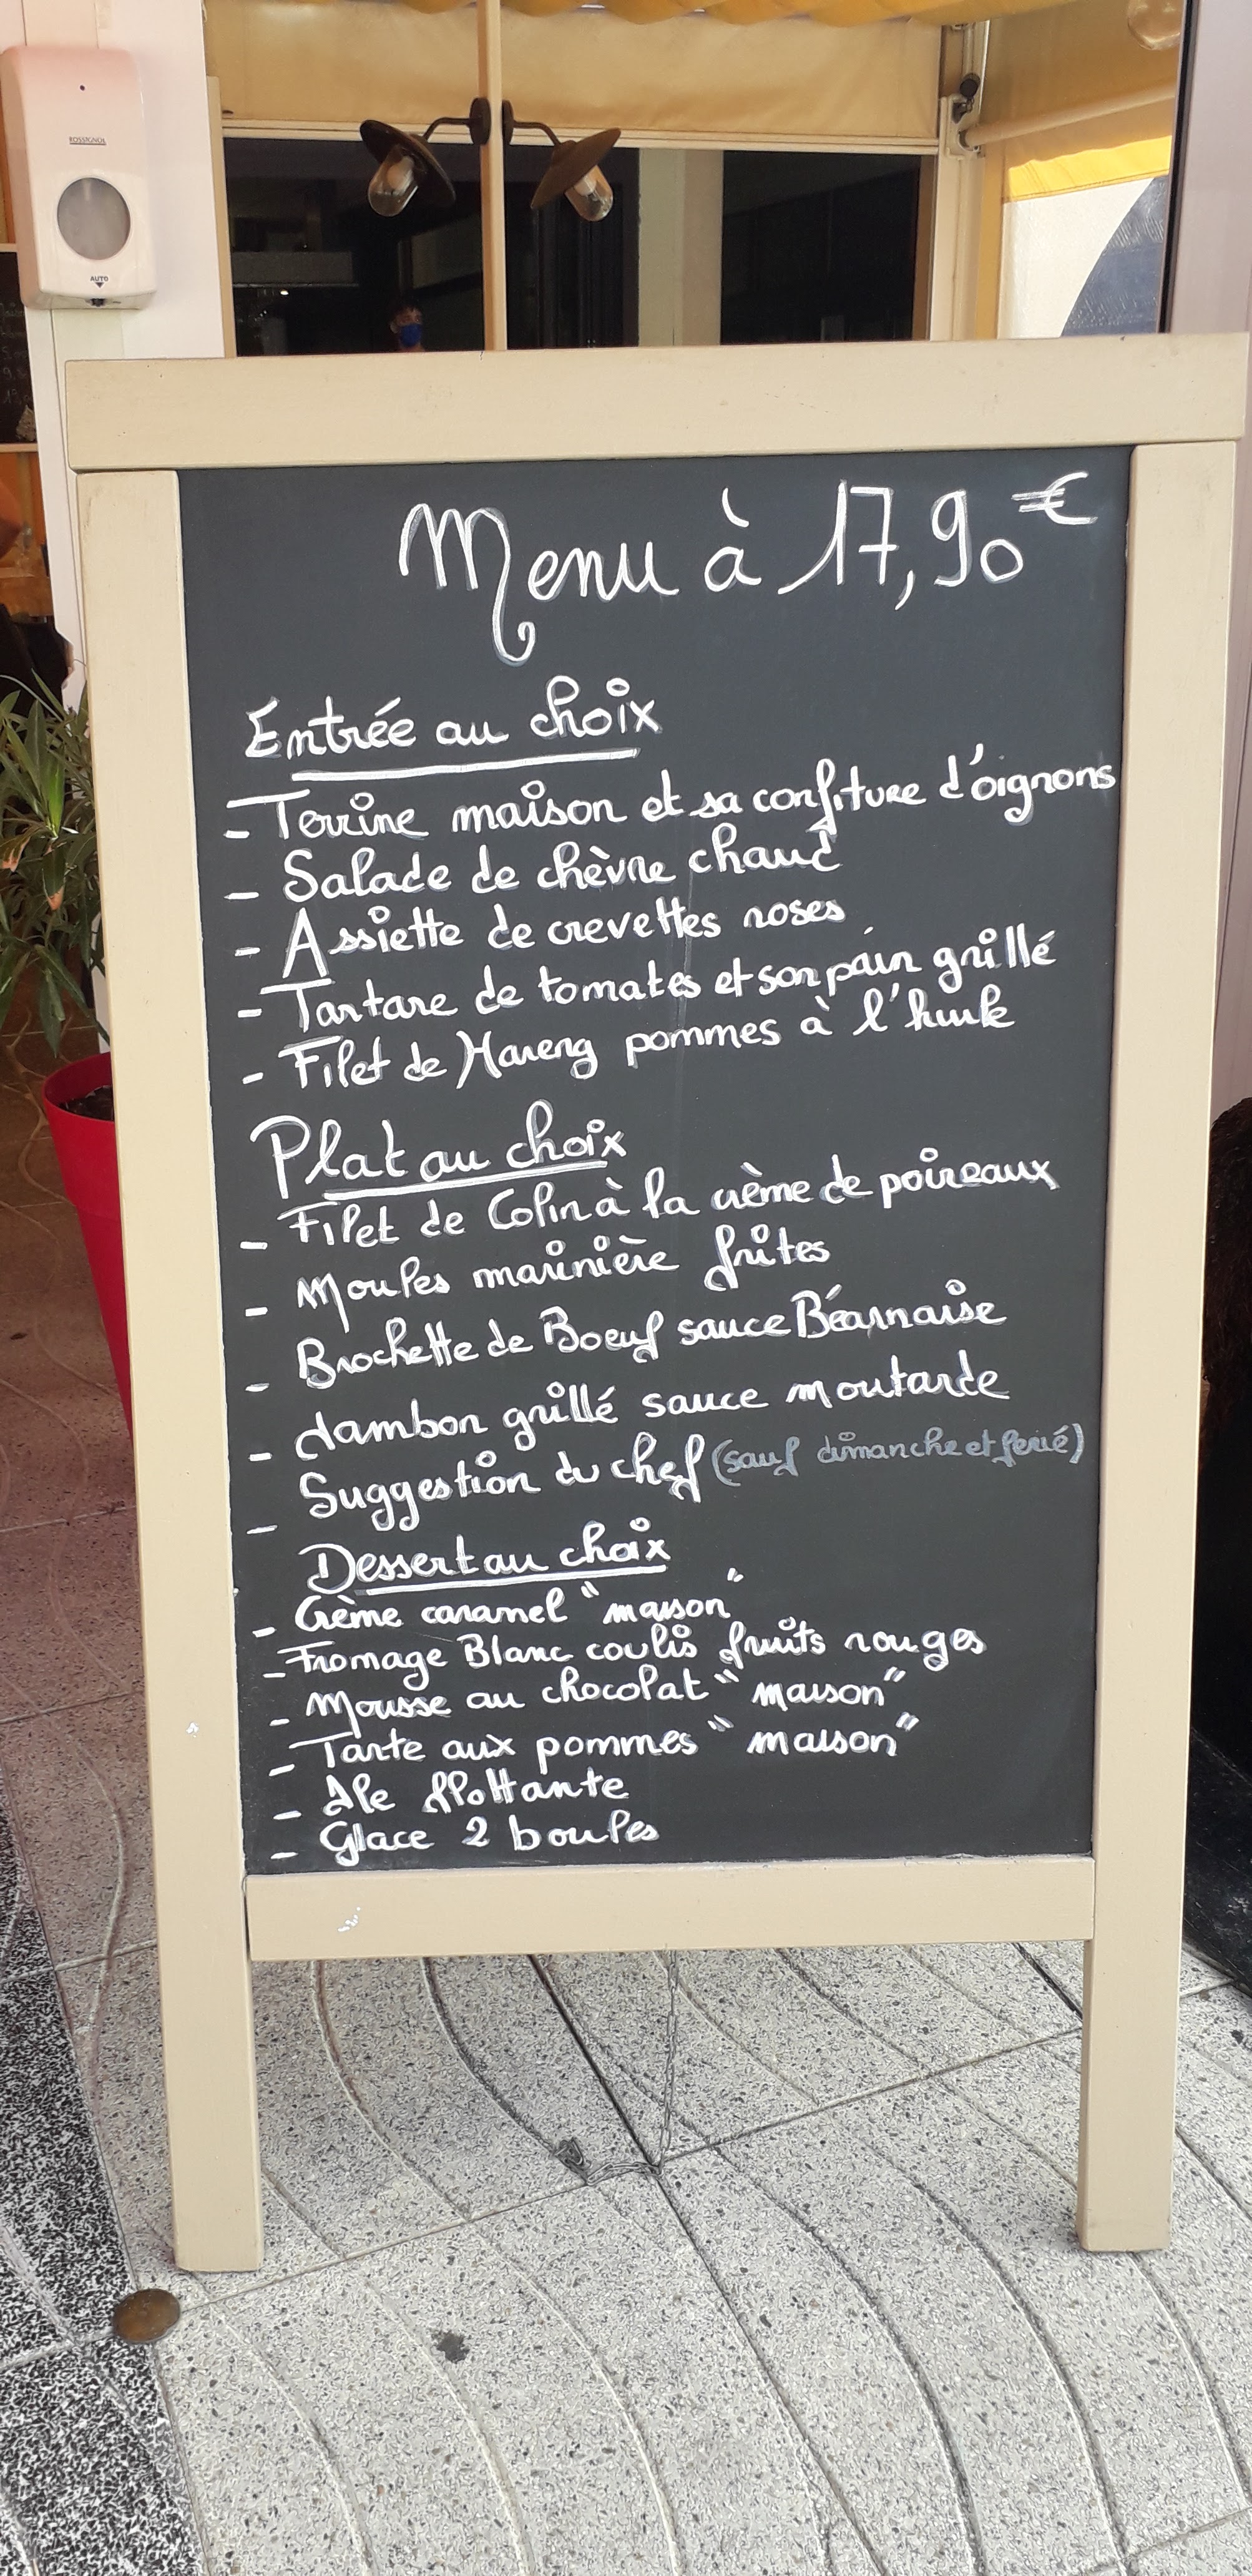 ROSSIGNOL
AUTO
Menu à 17,90€
Entrée au choix
- Terrine maison et sa confiture d'oignons
- Salade de chèvre chaud
- Assiette de crevettes roses
- Tartare de tomates et son pain grillé
- Filet de Hareng pommes à l'huile
Plat au choix
- Filet de Colin à la crème de poireaux
- Moules marinière frites
- Brochette de Boeuf sauce Béarnaise
- Jambon grillé sauce moutarde
- Suggestion du chef (sauf dimanche et ferié)
Dessert au choix
- Crème caramel "maison"
- Fromage Blanc coulis fruits rouges
- Mousse au chocolat "maison"
- Tarte aux pommes "maison"
- Ile flottante
- Glace 2 boules